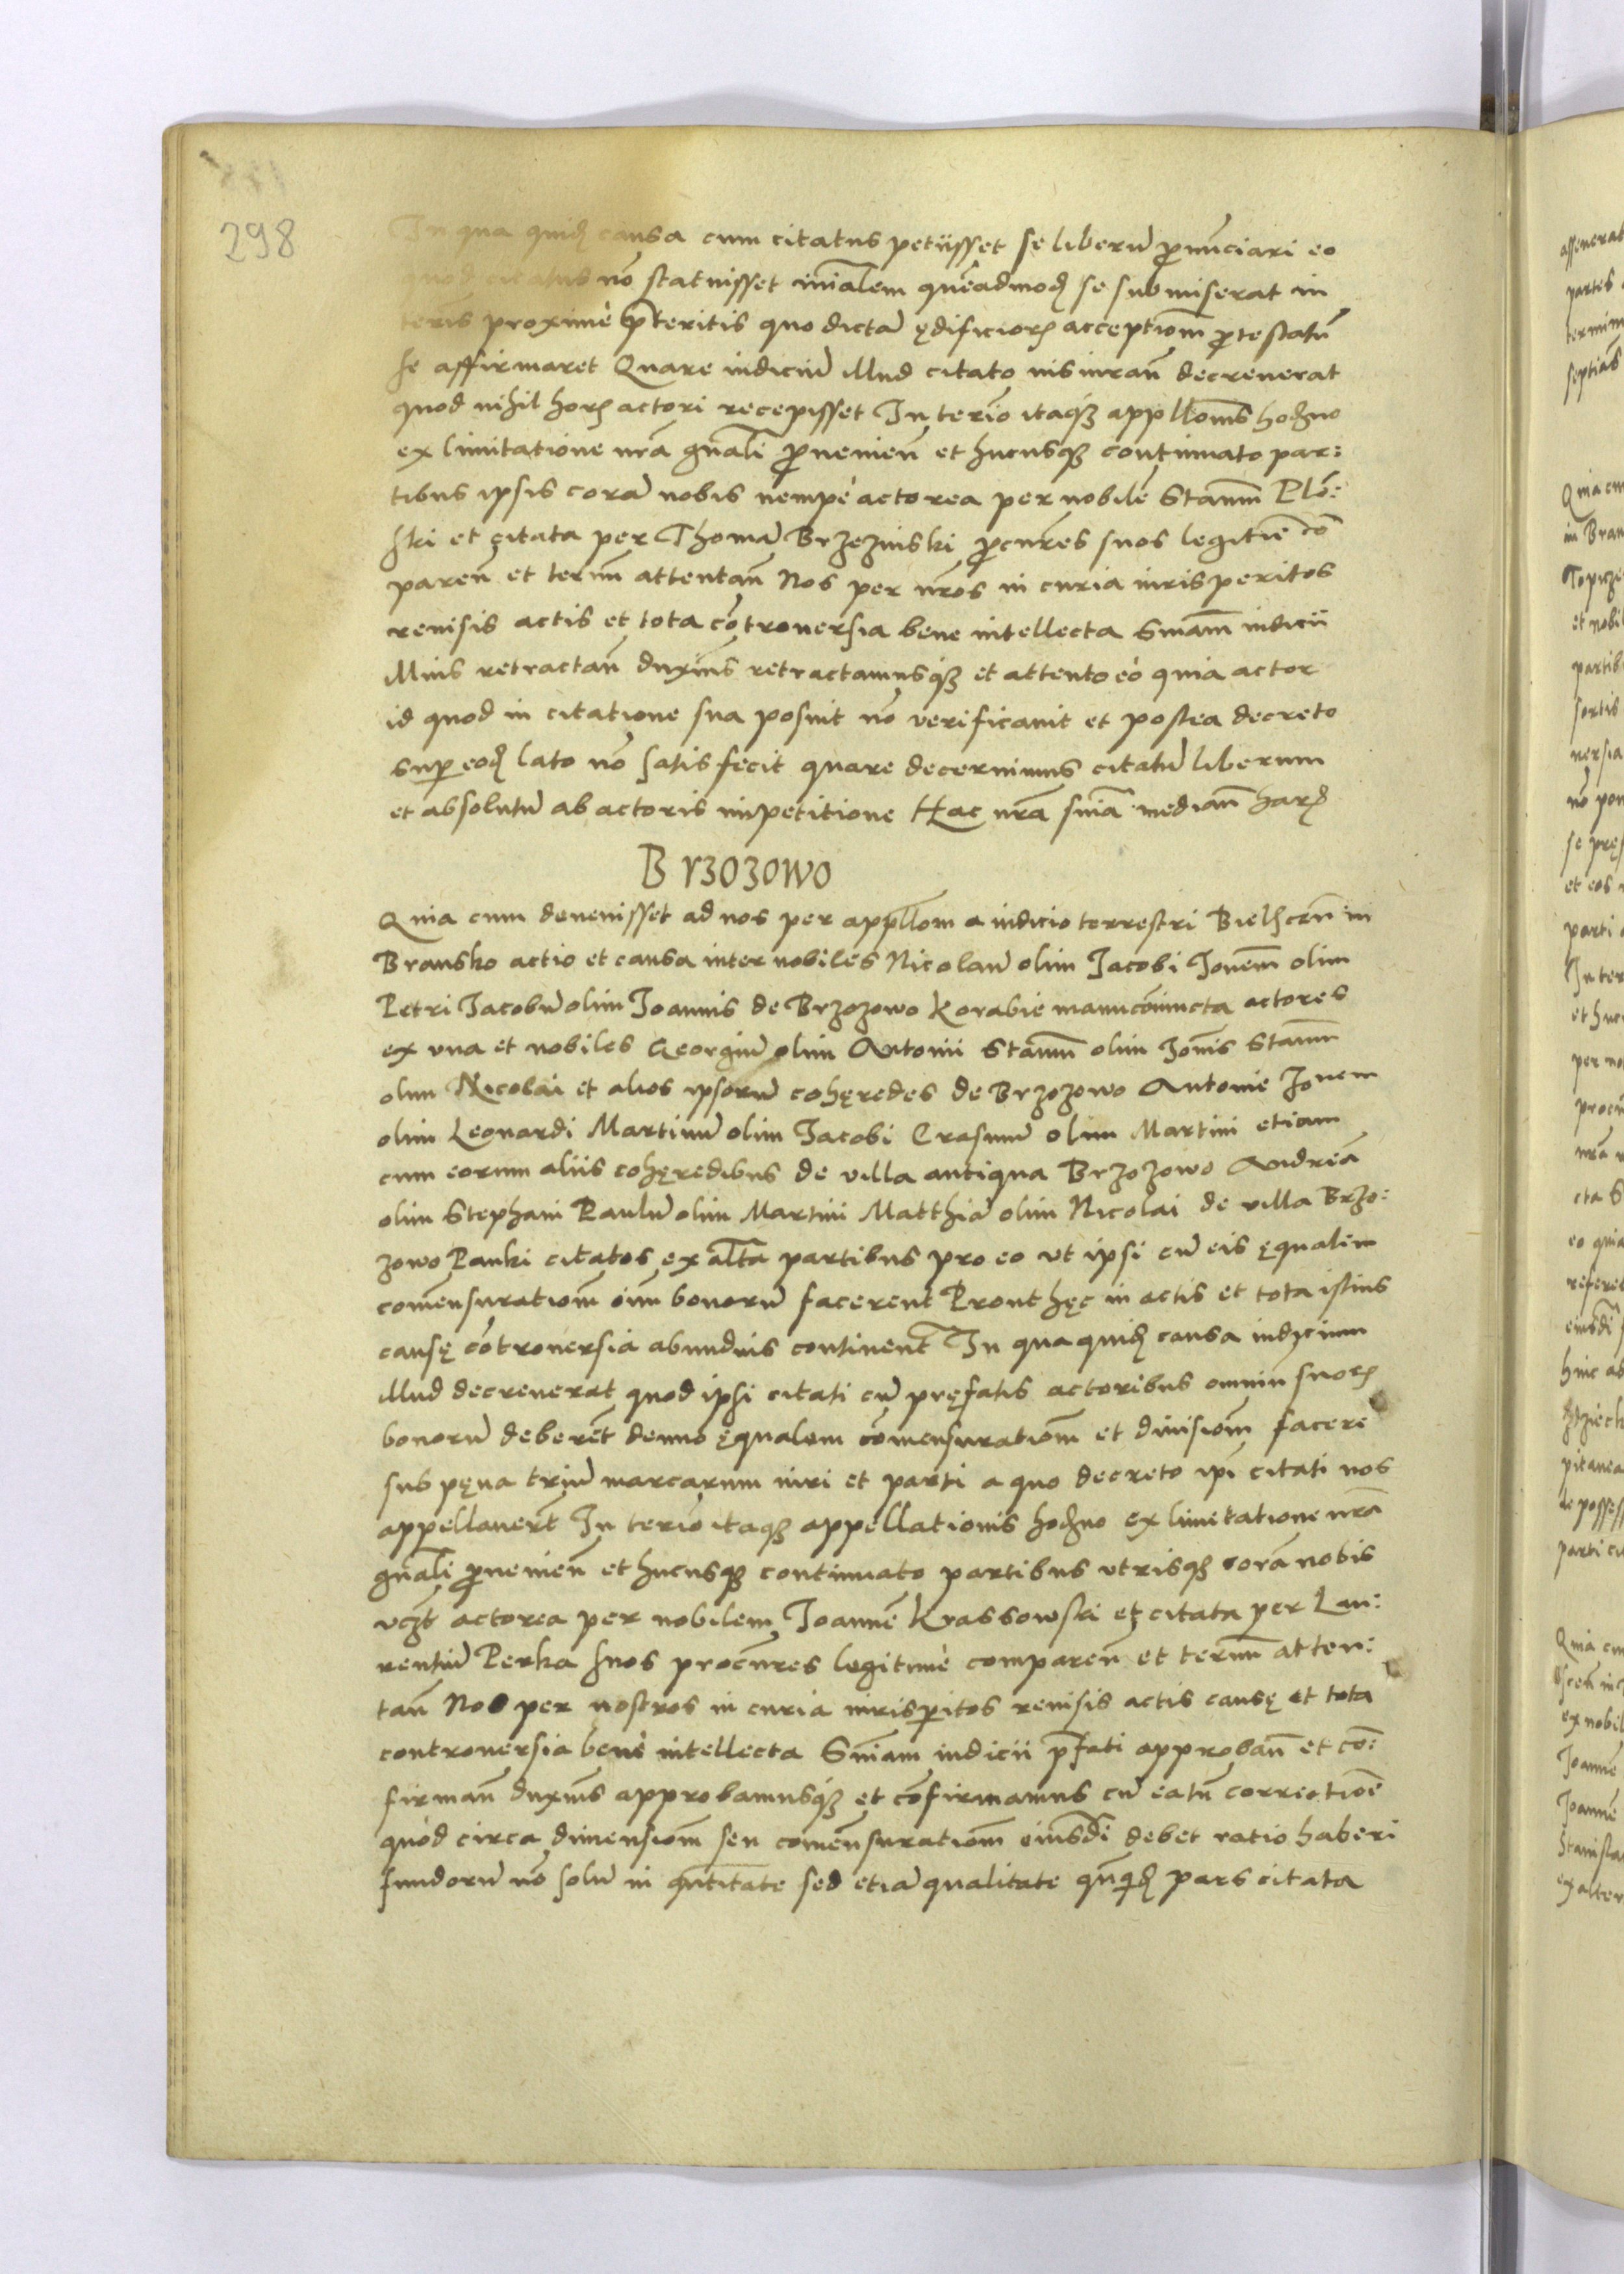 298
In qua quid causa cum citatus petiisset se liberũ pronũciari eo
quod citatus nõ statuisset iñialem quẽadmod se submiserat in
teris proximè pteritis quo dictã ędificiorũ acceptiom protestatũ
se affirmaret Quare iudiciũ illud citato iusiuran̄ decreuerat
quod nihil horũ actori recepisset In terio itaq3 appllonis hodno
ex limitatione nrã gnãli prouenien̄ et hucusq3 continuato par:
tibus ipsis corã nobis nempè actorea per nobilẽ Stanm Plõ:
ski et citata per Thomã Brzezinski procũres suos legitiẽ cõ
paren̄ et termn attentan̄ Nos per nr̃os in curia iurisperitos
reuisis actis et tota cõtrouersia bene intellecta Sniam iudicii
illius retractan̄ duximus retractamusq3 et attento eò quia actor
id quod in citatione sua posuit nõ verificauit et postea decreto
super eod lato nõ satisfecit quare decernimus citatũ liberum
et absolutũ ab actoris impetitione Hac nrã sniã median̄ harũ
Brzozowo
Quia cum deuenisset ad nos per appllom a iudicio terrestri Bielscen̄ in
Bransko actio et causa inter nobiles Nicolaũ olim Jacobi Jonem olim
Petri Jacobũ olim Joannis de Brzozowo Korabie manucõiuncta actores
ex vna et nobiles Georgiũ olim Antonii Stanm olim Jonis Stanm
olim Nicolai et alios ipsorũ cohęredes de Brzozowo Antonie Jonem
olim Leonardi Martinũ olim Jacobi Erasmũ olim Martini etiam
cum eorum aliis cohęredibus de villa antiqua Brzozowo Andreã
olim Stephani Paulũ olim Martini Matthiã olim Nicolai de villa Brzo:
zowo Panki citatos ex altã partibus pro eo vt ipsi cũ eis ęqualem
comẽnsuratiom oim bonorũ facerent Prout hęc in actis et tota istius
causę cõtrouersia abundius continent In qua quid causa iudicium
illud decreuerat quod ipsi citati cũ pręfatis actoribus omniũ suorũ
bonorũ deberẽt denuo ęqualem cõmensuratiom et diuisiom facere
sub pęna triũ marcarum iuri et parti a quo decreto ipi citati nos
appellauert̃ In terio itaq3 appellationis hodno ex limitatione nrã
gnãli prouenien̄ et hucusq3 continuato partibus vtrisq3 corã nobis
vcz̃t actorea per nobilem Joannẽ Krassowski et citata per Lau:
rentiũ Perka suos procũres legitimè comparen̄ et termn atten:
tan̄ Nos per nostros in curia iurisperitos reuisis actis causę et tota
controuersia benè intellecta Sniam iudicii pfati approban̄ et cõ:
firman̄ duximus approbamusq3 et cõfirmamus cũ eatũ correctiõe
quòd circa dimensiom seu comẽnsuratiom eiusdi debet ratio haberi
fundorũ nõ solũ in qntitate sed etiã qualitate qnq̃d pars citata